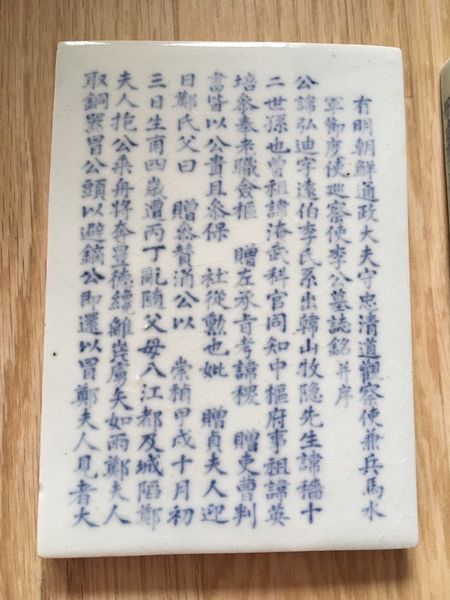 有明朝鮮通政大夫守忠清道觀察使兼兵馬水
軍節度使巡察使李公墓誌銘并序
公諱弘迪字遠伯李氏系出韓山牧隱先生諱穡十
二世孫也曾祖諱涛武科官同知中樞府事祖諱英
培參奉來職僉樞 贈左丞旨考諱稷 贈吏曹判
書皆以公貴且參保 社從勳也妣 贈貞夫人迎
日鄭氏父曰 贈參贊洧公以 崇禎甲戌十月初
三日生甫四歲遭丙丁亂随父母入江都及城陷鄭
夫人抱公乘舟將奪德纜離岸虜矢如雨鄭夫人
取銅器冒公頭以避鏑公即還以冒鄭夫人見者大